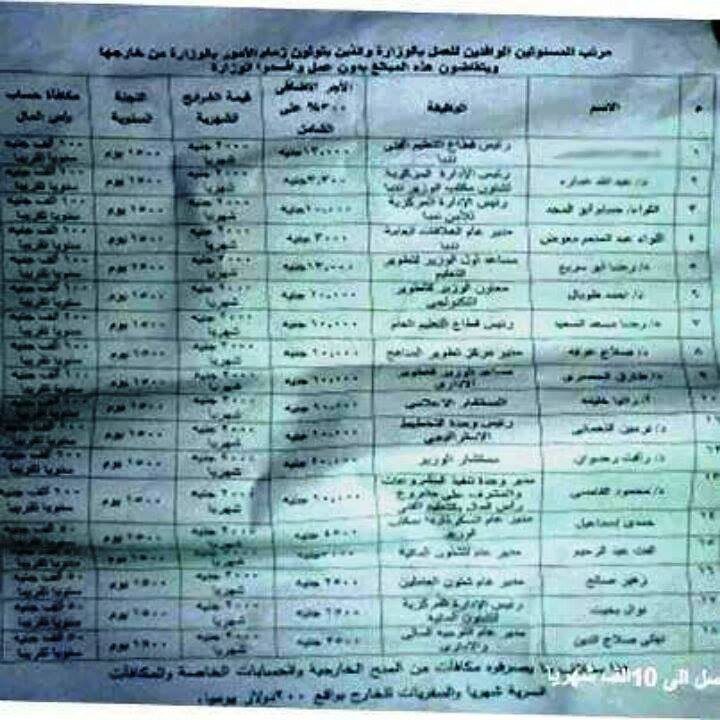 مرتب المسئولين الوافدين للعمل بالوزارة والذين يتولون زمام الأمور بالوزارة من خارجها
ويتقاضون هذه المبالغ بدون عمل وأفسدوا الوزارة
م الاسم الوظيفة الأجر الإضافى ٣٠٠% على الشامل قيمة الشرائح الشهرية اللجنة السنوية مكافأة حساب رأس المال
١ رئيس قطاع التعليم الفنى ندبا ١٣,٠٠٠ جنيه ٢٠٠٠ جنيه شهريا ١٥٠٠ يوم ١٠٠ ألف جنيه سنويا تقريبا
٢ د/ عبد الله عماره رئيس الإدارة المركزية لشئون مكتب الوزير ندبا ٢٠٠٠ جنيه شهريا ١٥٠٠ يوم ألف جنيه سنويا تقريبا
٣ اللواء/ حسام أبو المجد رئيس الإدارة المركزية للأمن ندبا ١٠,٠٠٠ جنيه ٢٠٠٠ جنيه شهريا ١٥٠٠ يوم ١٠٠ ألف جنيه سنويا تقريبا
٤ اللواء عبد المنعم معوض مدير عام العلاقات العامة ندبا ٣٠٠٠ جنيه ٢٠٠٠ جنيه شهريا ١٥٠٠ يوم ألف جنيه سنويا تقريبا
٥ د/ رضا أبو سريع مساعد أول الوزير لتطوير التعليم ١٣,٠٠٠ جنيه ٢٠٠٠ جنيه شهريا ١٥٠٠ يوم ألف جنيه سنويا تقريبا
٦ د/ احمد طوبال معاون الوزير للتطوير التكنولوجى ١٠,٠٠٠ جنيه ٢٠٠٠ جنيه شهريا ١٥٠٠ يوم ألف جنيه سنويا تقريبا
٧ د/ رضا مسعد السعيد رئيس قطاع التعليم العام ١٠,٠٠٠ جنيه ٢٠٠٠ جنيه شهريا ١٥٠٠ يوم ألف جنيه سنويا تقريبا
٨ د/ صلاح عرفه مدير مركز تطوير المناهج ١٠,٠٠٠ جنيه ٢٠٠٠ جنيه شهريا ١٥٠٠ يوم ألف جنيه سنويا تقريبا
٩ د/ طارق الحصرى مساعد الوزير للتطوير الإدارى ١٠,٠٠٠ جنيه ٢٠٠٠ جنيه شهريا ١٥٠٠ يوم ألف جنيه سنويا تقريبا
١٠ المستشار الإعلامى ١٠,٠٠٠ جنيه ٢٠٠٠ جنيه شهريا ١٥٠٠ يوم ألف جنيه سنويا تقريبا
١١ د/ نرمين النعمانى رئيس وحدة التخطيط الاستراتيجى ١٠,٠٠٠ جنيه ٢٠٠٠ جنيه شهريا ١٥٠٠ يوم ألف جنيه سنويا تقريبا
١٢ د/ رأفت رضوان مستشار الوزير ٢٠٠٠ جنيه شهريا ١٥٠٠ يوم ألف جنيه سنويا تقريبا
١٣ د/ محمود مدير وحدة تنفيذ المشروعات والمشرف على مشروع رأس المال بالتعليم الفنى ١٠,٠٠٠ جنيه ٢٠٠٠ جنيه شهريا ١٥٠٠ يوم ألف جنيه سنويا تقريبا
١٤ حمدى إسماعيل مدير عام السكرتارية الوزير ٤٥٠٠ جنيه ٢٠٠٠ جنيه شهريا ١٥٠٠ يوم ٥٠ ألف جنيه سنويا تقريبا
١٥ ألفت عبد الرحيم مدير عام الشئون المالية جنيه ٢٠٠٠ جنيه شهريا ١٥٠٠ يوم ٥٠ ألف جنيه سنويا تقريبا
١٦ زهير صالح مدير عام شئون العاملين ٢٥٠٠ جنيه ٢٠٠٠ جنيه شهريا ١٥٠٠ يوم ٥٠ ألف جنيه سنويا تقريبا
١٧ نوال بخيت رئيس الإدارة المركزية للشئون المالية ٦٥٠٠ جنيه ٢٠٠٠ جنيه شهريا ١٥٠٠ يوم ٥٠ ألف جنيه سنويا تقريبا
١٨ ليلى صلاح الدين مدير عام التوجيه المالى والإدارى ٢٥٠٠ جنيه ٢٠٠٠ جنيه شهريا ١٥٠٠ يوم ٥٠ ألف جنيه سنويا تقريبا
هذا بخلاف ما يصرفوه مكافآت من المنح الخارجية والحسابات الخاصة والمكافآت
السرية شهريا والسفريات للخارج بواقع ٢٠٠ دولار يوميا.
صل الى 10الف شهريا